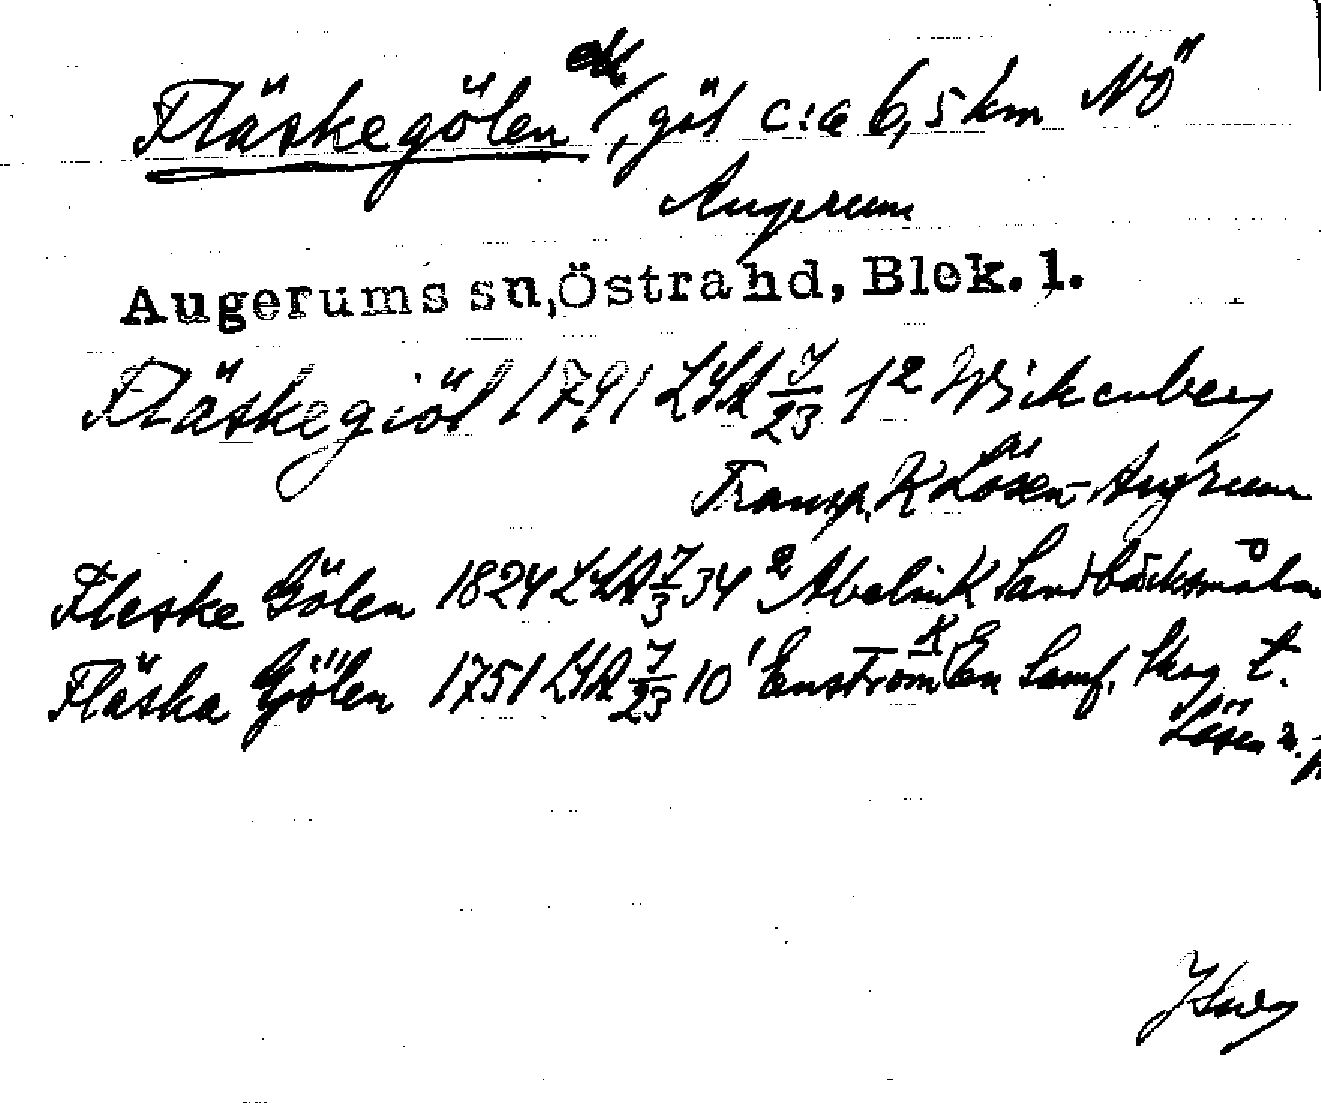 Fläskegölen ek/, göl c:a 6,5 km NÖ
Augerum
Augerums sn, Östra hd, Blek. l.
Fläskegiöl 1791 LSA J/23 1² Wickenberg
Transp. K Lösen-Augrum
Fleske Gölen 1824 LSA J/3 34² Abelin K Sandbäcksmåla
Fläska Gjölen 1751 LSA J/23 10¹ Enström K En Samf. Skog t.
Lösen